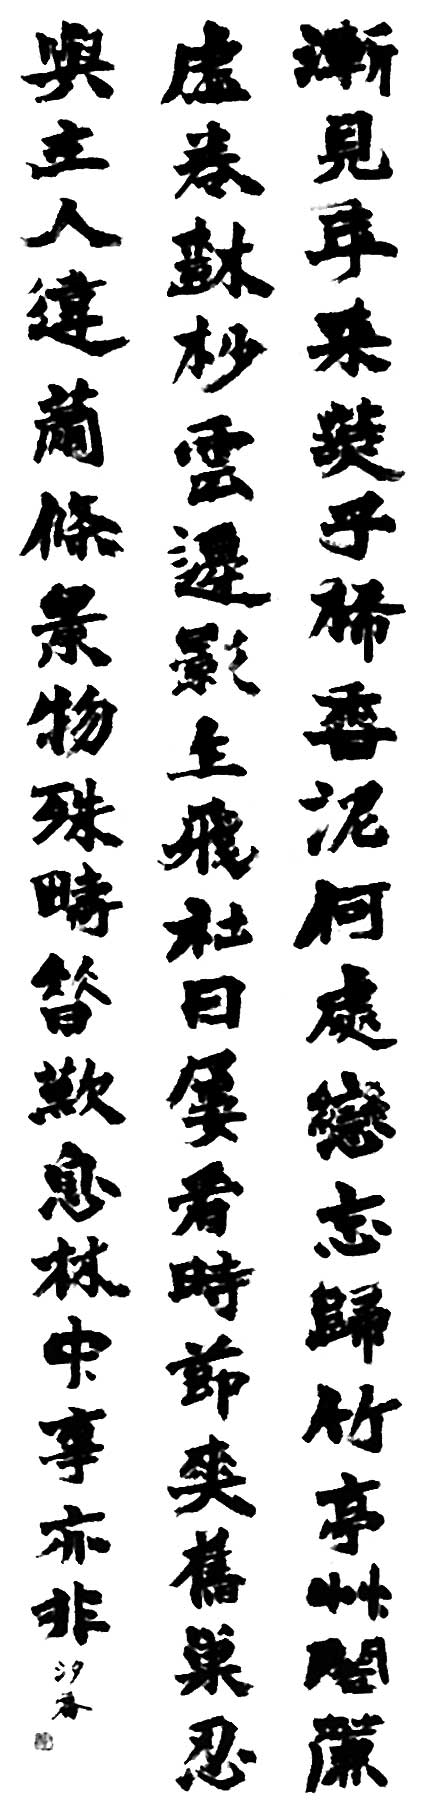 漸見年來燕子稀香泥何處戀忘歸竹亭艸閣簾
虛卷樹杪雲邊影生飛社日屢看時節爽舊巢忍
與主人違蕭條景物殊疇昔歎息林中事亦非
汐春